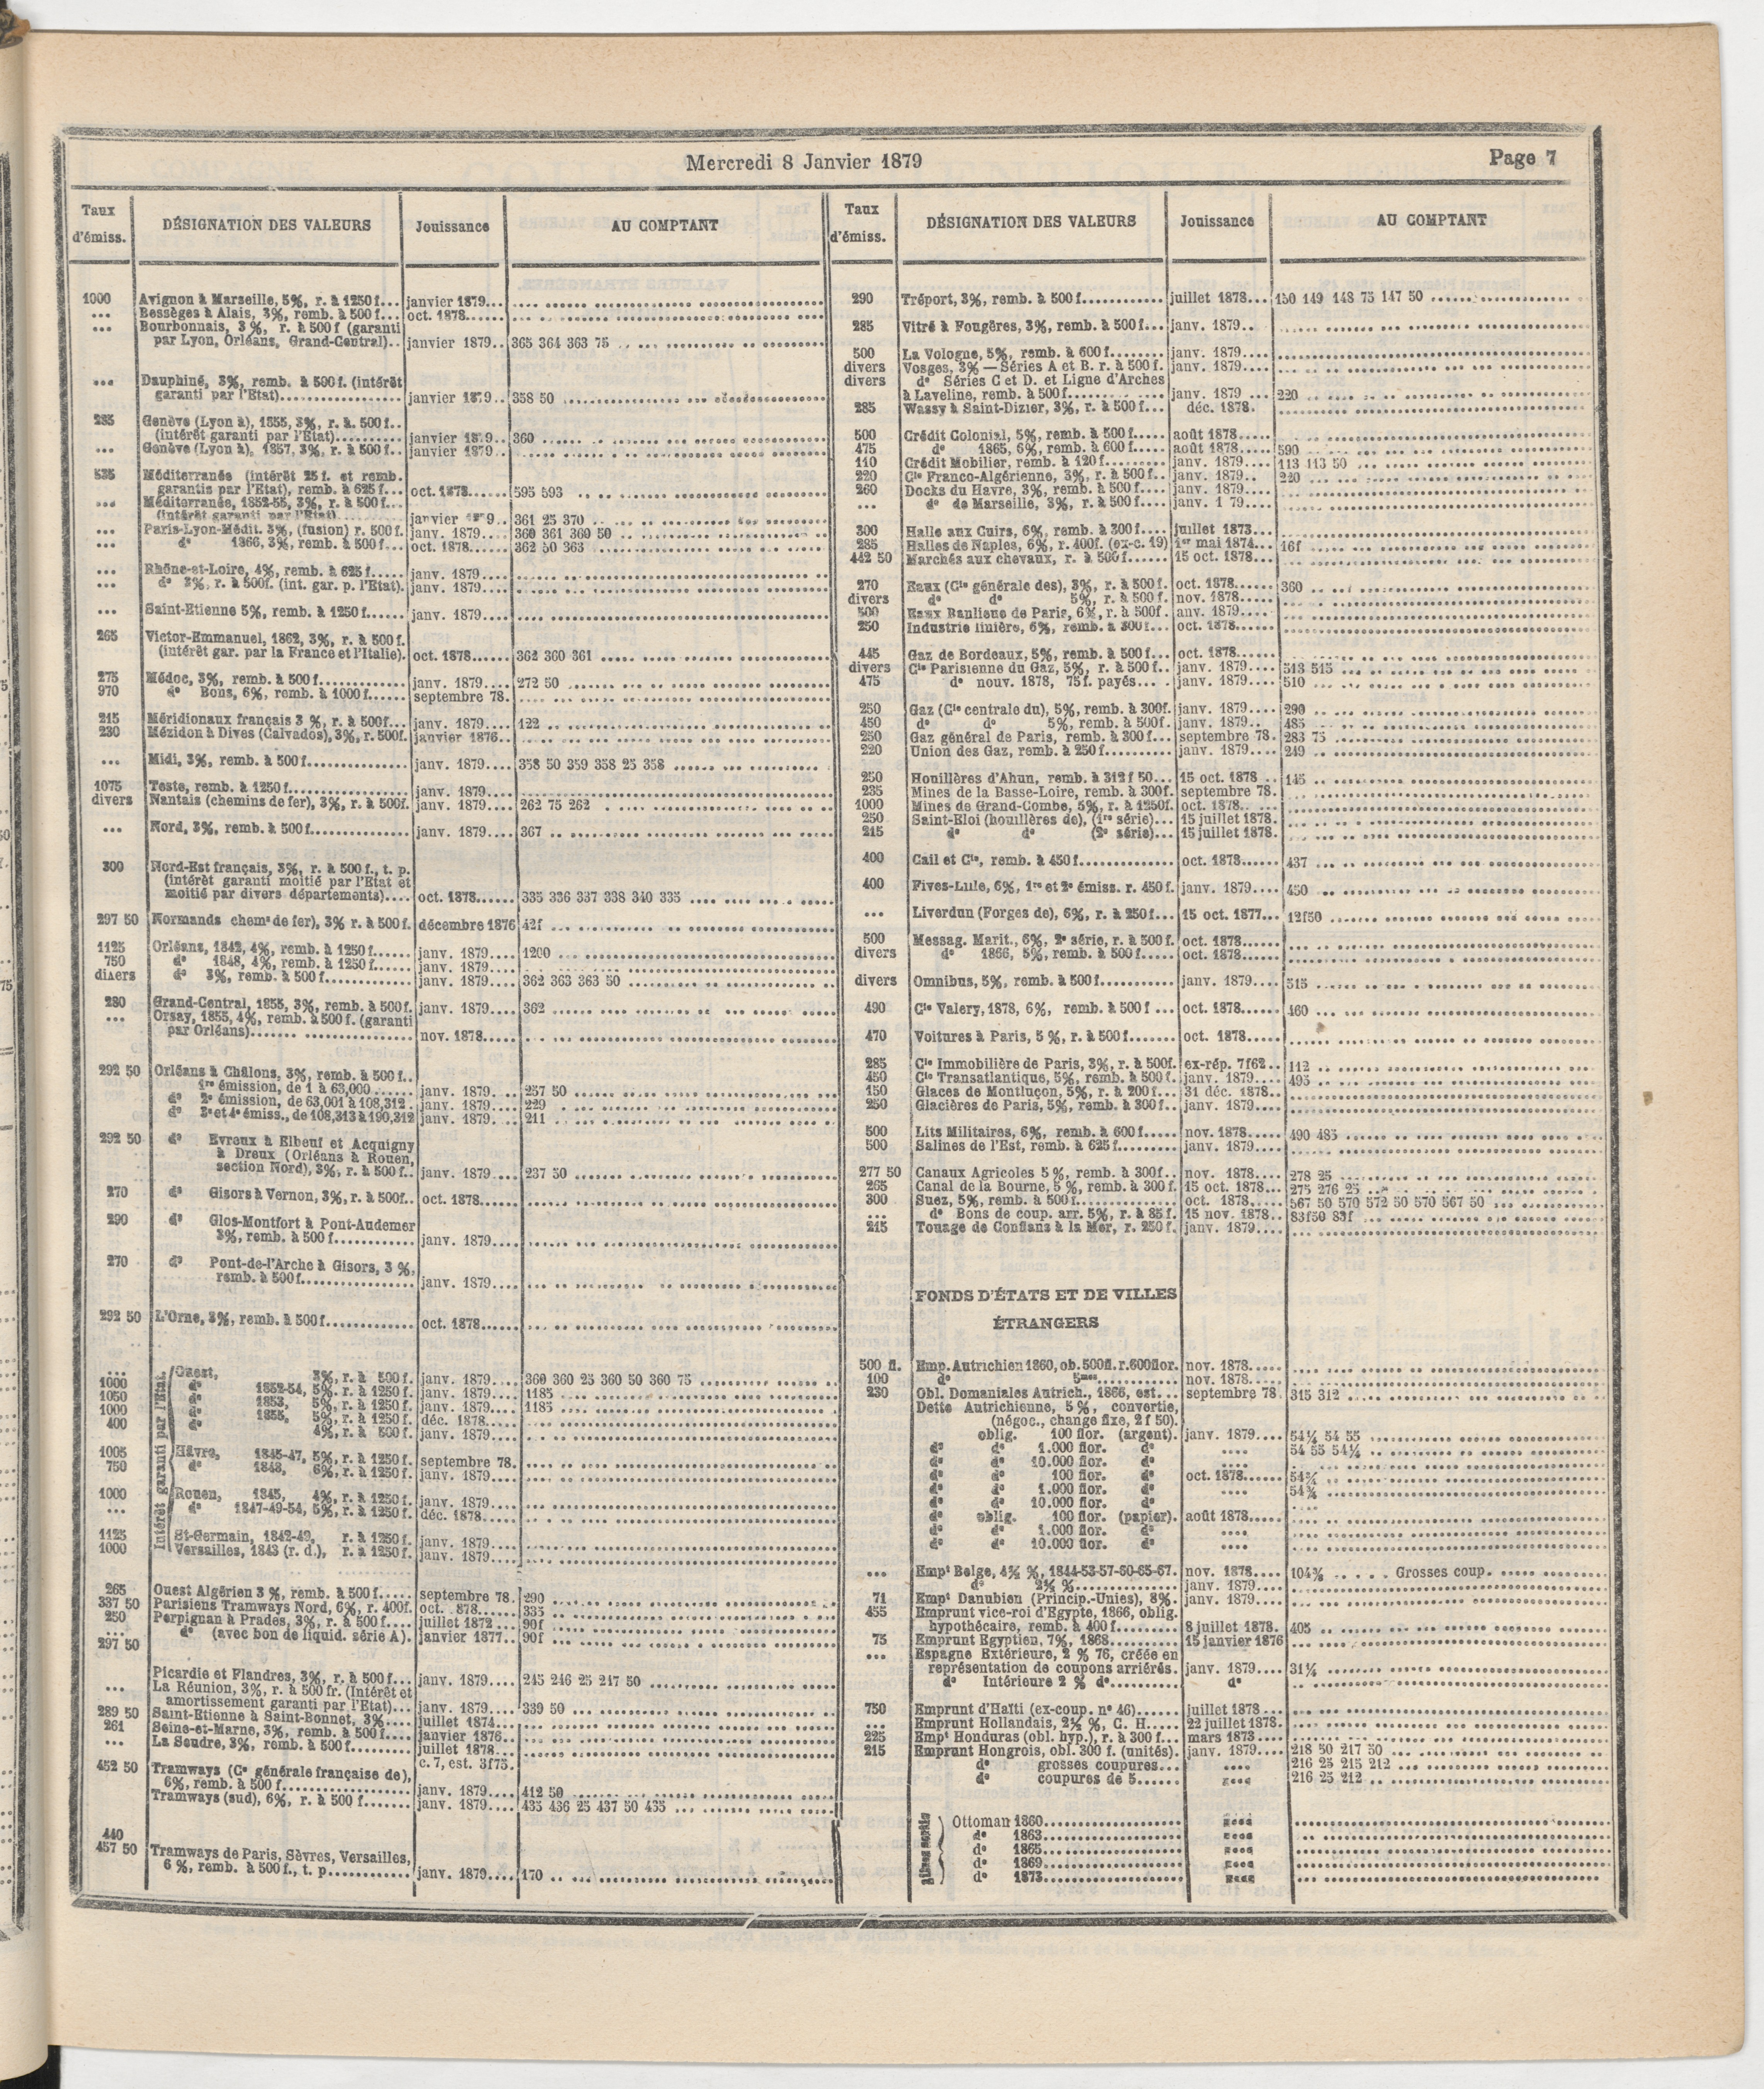 Mercredi 8 Janvier 1879
Page 7
Taux d'émiss. DÉSIGNATION DES VALEURS Jouissance AU COMPTANT
1000 Avignon à Marseille, 5%, r. à 1250 f... janvier 1879...
... Bessèges à Alais, 3%, remb. à 500 f... oct. 1878......
... Bourbonnais, 3 %, r. à 500 f (garanti
par Lyon, Orléans, Grand-Central).. janvier 1879.. 365 364 363 75
... Dauphiné, 3%, remb. à 500 f. (intérêt
garanti par l'Etat)............... janvier 1879.. 358 50
285 Genève (Lyon à), 1855, 3%, r. à. 500 f..
(intérêt garanti par l'Etat).......... janvier 1879.. 360
... Genève (Lyon à), 1857, 3%, r. à 500 f.. janvier 1879..
535 Méditerranée (intérêt 25 f. et remb.
garantis par l'Etat), remb. à 625 f... oct. 1878...... 595 593
... Méditerranée, 1852-55, 3%, r. à 500 f...
(intérêt garanti par l'Etat) janvier 9.. 361 25 370
... Paris-Lyon-Médit. 3%, (fusion) r. 500 f. janv. 1879... 360 361 360 50
... do 1866, 3%, remb. à 500 f... oct. 1878...... 362 50 363
... Rhône-et-Loire, 4%, remb. à 625 f..... janv. 1879....
... do 3%, r. à 500f. (int. gar. p. l'Etat). janv. 1879....
... Saint-Etienne 5%, remb. à 1250 f..... janv. 1879....
265 Victor-Emmanuel, 1862, 3%, r. à 500 f.
(intérêt gar. par la France et l'Italie). oct. 1878...... 362 360 361
275 Médoc, 3%, remb. à 500 f............. janv. 1879.... 272 50
970 do Bons, 6%, remb. à 1000 f...... septembre 78.
215 Méridionaux français 3 %, r. à 500f... janv. 1879.... 122
230 Mézidon à Dives (Calvados), 3%, r. 500f. janvier 1876..
... Midi, 3%, remb. à 500 f.............. janv. 1879.... 358 50 359 358 25 358
1075 Teste, remb. à 1250 f................. janv. 1879....
divers Nantais (chemins de fer), 3%, r. à 500f. janv. 1879.... 262 75 262
... Nord, 3%, remb. à 500 f.............. janv. 1879.... 367
300 Nord-Est français, 3%, r. à 500 f., t. p.
(intérêt garanti moitié par l'Etat et
moitié par divers départements).... oct. 1878...... 335 336 337 338 340 335
297 50 Normands chems de fer), 3% r. à 500f. décembre 1876 42f
1125 Orléans, 1842, 4%, remb. à 1250 f...... janv. 1879.... 1200
750 do 1848, 4%, remb. à 1250 f...... janv. 1879....
diaers do 3%, remb. à 500 f........... janv. 1879.... 362 363 363 50
280 Grand-Central, 1855, 3%, remb. à 500f. janv. 1879.... 362
... Orsay, 1855, 4%, remb. à 500 f. (garanti
par Orléans)....... nov. 1878.....
292 50 Orléans à Châlons, 3%, remb. à 500 f..
1re émission, de 1 à 63,000 ...... janv. 1879.... 257 50
do 2e émission, de 63,001 à 108,312. janv. 1879.... 229
do 3e et 4e émiss., de 108,313 à 190,312 janv. 1879.... 211
292 50 do Evreux à Elbeuf et Acquigny
à Dreux (Orléans à Rouen,
section Nord), 3%, r. à 500 f.. janv. 1879.... 237 50
270 do Gisors à Vernon, 3%, r. à 500f.. oct. 1878.....
290 do Glos-Montfort à Pont-Audemer
3%, remb. à 500 f............ janv. 1879....
270 do Pont-de-l'Arche à Gisors, 3 %,
remb. à 500 f................ janv. 1879....
292 50 L'Orne, 3%, remb. à 500 f............. oct. 1878......
Intérêt garanti par l'Etat.
... Ouest, 3%, r. à 500 f. janv. 1879.... 360 360 25 360 50 360 75
1000 do 1852-54, 5%, r. à 1250 f. janv. 1879.... 1185
1050 do 1853, 5%, r. à 1250 f. janv. 1879.... 1185
1000 do 1855, 5%, r. à 1250 f. déc. 1878.....
400 do 4%, r. à 500 f. janv. 1879....
1005 Hâvre, 1845-47, 5%, r. à 1250 f. septembre 78.
750 do 1848, 6%, r. à 1250 f. janv. 1879....
1000 Rouen, 1845, 4%, r. à 1250 f. janv. 1879....
... do 1847-49-54, 5%, r. à 1250 f. déc. 1878.....
1125 St-Germain, 1842-49, r. à 1250 f. janv. 1879....
1000 Versailles, 1843 (r. d.), r. à 1250 f. janv. 1879....
265 Ouest Algérien 3 %, remb. à 500 f..... septembre 78. 290
337 50 Parisiens Tramways Nord, 6%, r. 400f. oct. 878...... 335
250 Perpignan à Prades, 3%, r. à 500 f.... juillet 1872 ... 90f
... do (avec bon de liquid. série A). janvier 1877.. 90f
297 50
Picardie et Flandres, 3%, r. à 500 f... janv. 1879.... 245 246 25 247 50
... La Réunion, 3%, r. à 500 fr. (Intérêt et
amortissement garanti par l'Etat)... janv. 1879.... 339 50
289 50 Saint-Etienne à Saint-Bonnet, 3%.... juillet 1874...
261 Seine-et-Marne, 3%, remb. à 500 f.... janvier 1876..
... La Seudre, 3%, remb. à 500 f......... juillet 1878...
c. 7, est. 3f75.
452 50 Tramways (Ce générale française de),
6%, remb. à 500 f.............. janv. 1879.... 412 50
Tramways (sud), 6%, r. à 500 f....... janv. 1879.... 435 436 25 437 50 435
440
457 50 Tramways de Paris, Sèvres, Versailles,
6 %, remb. à 500 f., t. p........... janv. 1879.... 170
Taux d'émiss. DÉSIGNATION DES VALEURS Jouissance AU COMPTANT
290 Tréport, 3%, remb. à 500 f............ juillet 1878... 150 149 148 75 147 50
285 Vitré à Fougères, 3%, remb. à 500 f... janv. 1879..
500 La Vologne, 5%, remb. à 600 f........ janv. 1879....
divers Vosges, 3% — Séries A et B. r. à 500 f. janv. 1879....
divers do Séries C et D. et Ligne d'Arches
à Laveline, remb. à 500 f........... janv. 1879 ... 220
285 Wassy à Saint-Dizier, 3%, r. à 500 f... déc. 1878.
500 Crédit Colonial, 5%, remb. à 500 f..... août 1878.....
475 do 1865, 6%, remb. à 600 f..... août 1878..... 590
110 Crédit Mobilier, remb. à 120 f......... janv. 1879.... 113 113 50
220 Cie Franco-Algérienne, 3%, r. à 500 f. janv. 1879.. 220
260 Docks du Havre, 3%, remb. à 500 f.... janv. 1879....
... do de Marseille, 3%, r. à 500 f.... janv. 1 79....
300 Halle aux Cuirs, 6%, remb. à 300 f.... juillet 1873...
285 Halles de Naples, 6%, r. 400f. (ex-c. 19) 1er mai 1874... 16f
442 50 Marchés aux chevaux, r. à 500 f...... 15 oct. 1878...
270 Eaux (Cie générale des), 3%, r. à 500 f. oct. 1878...... 360
divers do do 5%, r. à 500 f. nov. 1878.....
500 Eaux Banlieue de Paris, 6%, r. à 500f. anv. 1879....
250 Industrie linière, 6%, remb. à 300 f... oct. 1878......
445 Gaz de Bordeaux, 5%, remb. à 500 f... oct. 1878......
divers Cie Parisienne du Gaz, 5%, r. à 500 f.. janv. 1879.... 513 515
475 do nouv. 1878, 75 f. payés... janv. 1879.... 510
250 Gaz (Cie centrale du), 5%, remb. à 300f. janv. 1879.... 290
450 do do 5%, remb. à 500f. janv. 1879.. 485
250 Gaz général de Paris, remb. à 300 f... septembre 78. 283 75
220 Union des Gaz, remb. à 250 f.......... janv. 1879.... 249
250 Houillères d'Ahun, remb. à 312 f 50... 15 oct. 1878 .. 145
235 Mines de la Basse-Loire, remb. à 300f. septembre 78.
1000 Mines de Grand-Combe, 5%, r. à 1250f. oct. 1878..
250 Saint-Eloi (houillères de), (1re série)... 15 juillet 1878.
215 do do (2e série)... 15 juillet 1878.
400 Cail et Cie, remb. à 450 f.............. oct. 1878...... 437
400 Fives-Lille, 6%, 1re et 2e émiss. r. 450 f. janv. 1879.... 450
... Liverdun (Forges de), 6%, r. à 250 f... 15 oct. 1877... 12f50
500 Messag. Marit., 6%, 2e série, r. à 500 f. oct. 1878......
divers do 1866, 5%, remb. à 500 f..... oct. 1878......
divers Omnibus, 5%, remb. à 500 f........... janv. 1879.... 515
490 Cie Valery, 1878, 6%, remb. à 500 f ... oct. 1878...... 460
470 Voitures à Paris, 5 %, r. à 500 f....... oct. 1878......
285 Cie Immobilière de Paris, 3%, r. à 500f. ex-rép. 7f62.. 112
450 Cie Transatlantique, 5%, remb. à 500 f. janv. 1879.... 495
150 Glaces de Montluçon, 5%, r. à 200 f... 31 déc. 1878..
250 Glacières de Paris, 5%, remb. à 300 f.. janv. 1879....
500 Lits Militaires, 6%, remb. à 600 f..... nov. 1878..... 490 485
500 Salines de l'Est, remb. à 625 f......... janv. 1879....
277 50 Canaux Agricoles 5 %, remb. à 300f.. nov. 1878.... 278 25
265 Canal de la Bourne, 5 %, remb. à 300 f. 15 oct. 1878... 275 276 25
300 Suez, 5%, remb. à 500 f............... oct. 1878...... 567 50 570 572 50 570 567 50
... do Bons de coup. arr. 5%, r. à 85 f. 15 nov. 1878.. 83f50 83f
215 Touage de Conflans à la Mer, r. 250 f. janv. 1879....
FONDS D'ÉTATS ET DE VILLES
ÉTRANGERS
500 fl. Emp. Autrichien 1860, ob. 500fl. r. 600flor. nov. 1878.....
100 do 5mes............ nov. 1878.....
230 Obl. Domaniales Autrich., 1866, est... septembre 78. 315 312
Dette Autrichienne, 5 %, convertie,
(négoc., change fixe, 2 f 50).
oblig. 100 flor. (argent). janv. 1879.... 54¼ 54 55
do do 1.000 flor. do .... 54 55 54¼
do do 10.000 flor. do ....
do do 100 flor. do oct. 1878...... 54¾
do do 1.000 flor. do .... 54¾
do do 10.000 flor. do
do oblig. 100 flor. (papier). août 1878.....
do do 1.000 flor. do ....
do do 10.000 flor. do ....
... Empt Belge, 4½ %, 1844-53-57-60-65-67. nov. 1878.... 104¾ Grosses coup.
do 2½ %............... janv. 1879....
71 Empt Danubien (Princip.-Unies), 8%. janv. 1879...
455 Emprunt vice-roi d'Egypte, 1866, oblig.
hypothécaire, remb. à 400 f......... 8 juillet 1878. 405
75 Emprunt Egyptien, 7%, 1868.......... 15 janvier 1876
... Espagne Extérieure, 2 % 76, créée en
représentation de coupons arriérés. janv. 1879.... 31¼
do Intérieure 2 % do.......... do
750 Emprunt d'Haïti (ex-coup. no 46)...... juillet 1878 ...
... Emprunt Hollandais, 2½ %, C. H..... 22 juillet 1878.
225 Empt Honduras (obl. hyp.), r. à 300 f... mars 1873.....
215 Emprunt Hongrois, obl. 300 f. (unités). janv. 1879.... 218 50 217 50
do grosses coupures... .... 216 25 215 212
do coupures de 5...... .... 216 25 212
Ottoman 1860
do 1863
do 1865
do 1869
do 1873